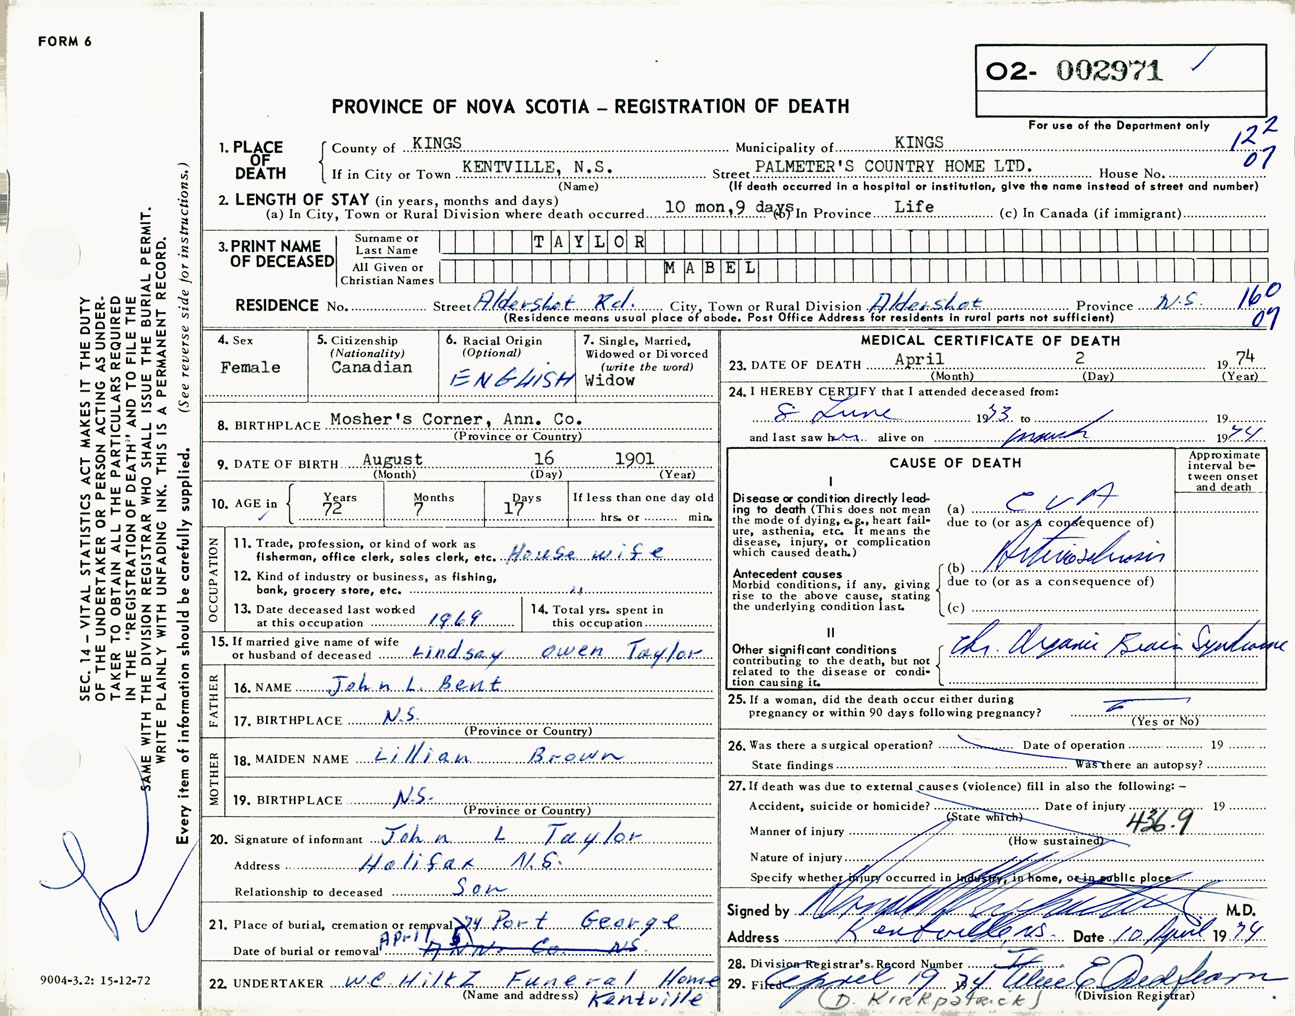 FORM 6
O2- 002971
PROVINCE OF NOVA SCOTIA – REGISTRATION OF DEATH
For use of the Department only
122
07
1. PLACE OF DEATH
County of KINGS Municipality of KINGS
If in City or Town KENTVILLE, N.S. Street PALMETER'S COUNTRY HOME LTD. House No.
(Name) (If death occurred in a hospital or institution, give the name instead of street and number)
2. LENGTH OF STAY (in years, months and days)
(a) In City, Town or Rural Division where death occurred 10 mon, 9 days (b) In Province Life (c) In Canada (if immigrant)
3. PRINT NAME OF DECEASED
Surname or Last Name TAYLOR
All Given or Christian Names MABEL
RESIDENCE No. Street Aldershot Rd. City, Town or Rural Division Aldershot Province N.S. 160
(Residence means usual place of abode. Post Office Address for residents in rural parts not sufficient) 07
4. Sex
Female
5. Citizenship (Nationality)
Canadian
6. Racial Origin (Optional)
ENGLISH
7. Single, Married, Widowed or Divorced (write the word)
Widow
8. BIRTHPLACE Mosher's Corner, Ann. Co.
(Province or Country)
9. DATE OF BIRTH August 16 1901
(Month) (Day) (Year)
10. AGE in Years 72 Months 7 Days 17 If less than one day old
hrs. or min.
OCCUPATION
11. Trade, profession, or kind of work as fisherman, office clerk, sales clerk, etc. House wife
12. Kind of industry or business, as fishing, bank, grocery store, etc. "
13. Date deceased last worked at this occupation 1969
14. Total yrs. spent in this occupation
15. If married give name of wife or husband of deceased Lindsay Owen Taylor
FATHER
16. NAME John L. Bent
17. BIRTHPLACE N.S.
(Province or Country)
MOTHER
18. MAIDEN NAME Lillian Brown
19. BIRTHPLACE N.S.
(Province or Country)
20. Signature of informant John L Taylor
Address Halifax N.S.
Relationship to deceased Son
21. Place of burial, cremation or removal Port George
Date of burial or removal April 5 74
22. UNDERTAKER W.C. Hiltz Funeral Home
(Name and address) Kentville
MEDICAL CERTIFICATE OF DEATH
23. DATE OF DEATH April 2 1974
(Month) (Day) (Year)
24. I HEREBY CERTIFY that I attended deceased from:
8 June 1973 to 19
and last saw her alive on March 1974
CAUSE OF DEATH
Approximate interval between onset and death
I
Disease or condition directly leading to death (This does not mean the mode of dying, e.g., heart failure, asthenia, etc. It means the disease, injury, or complication which caused death.)
(a) CVA
due to (or as a consequence of)
Antecedent causes
Morbid conditions, if any, giving rise to the above cause, stating the underlying condition last.
(b) Arteriosclerosis
due to (or as a consequence of)
(c)
II
Other significant conditions contributing to the death, but not related to the disease or condition causing it.
Chr. Organic Brain Syndrome
25. If a woman, did the death occur either during pregnancy or within 90 days following pregnancy?
(Yes or No)
26. Was there a surgical operation? Date of operation 19
State findings Was there an autopsy?
27. If death was due to external causes (violence) fill in also the following: –
Accident, suicide or homicide? Date of injury 19
(State which) 436.9
Manner of injury
(How sustained)
Nature of injury
Specify whether injury occurred in industry, in home, or in public place
Signed by M.D.
Address Kentville NS. Date 10 April 1974
28. Division Registrar's Record Number
29. Filed April 19 1974
(D. KIRKPATRICK) (Division Registrar)
SEC. 14 – VITAL STATISTICS ACT MAKES IT THE DUTY
OF THE UNDERTAKER OR PERSON ACTING AS UNDER-
TAKER TO OBTAIN ALL THE PARTICULARS REQUIRED
IN THE "REGISTRATION OF DEATH" AND TO FILE THE
SAME WITH THE DIVISION REGISTRAR WHO SHALL ISSUE THE BURIAL PERMIT.
WRITE PLAINLY WITH UNFADING INK. THIS IS A PERMANENT RECORD.
Every item of information should be carefully supplied. (See reverse side for instructions.)
9004-3.2: 15-12-72